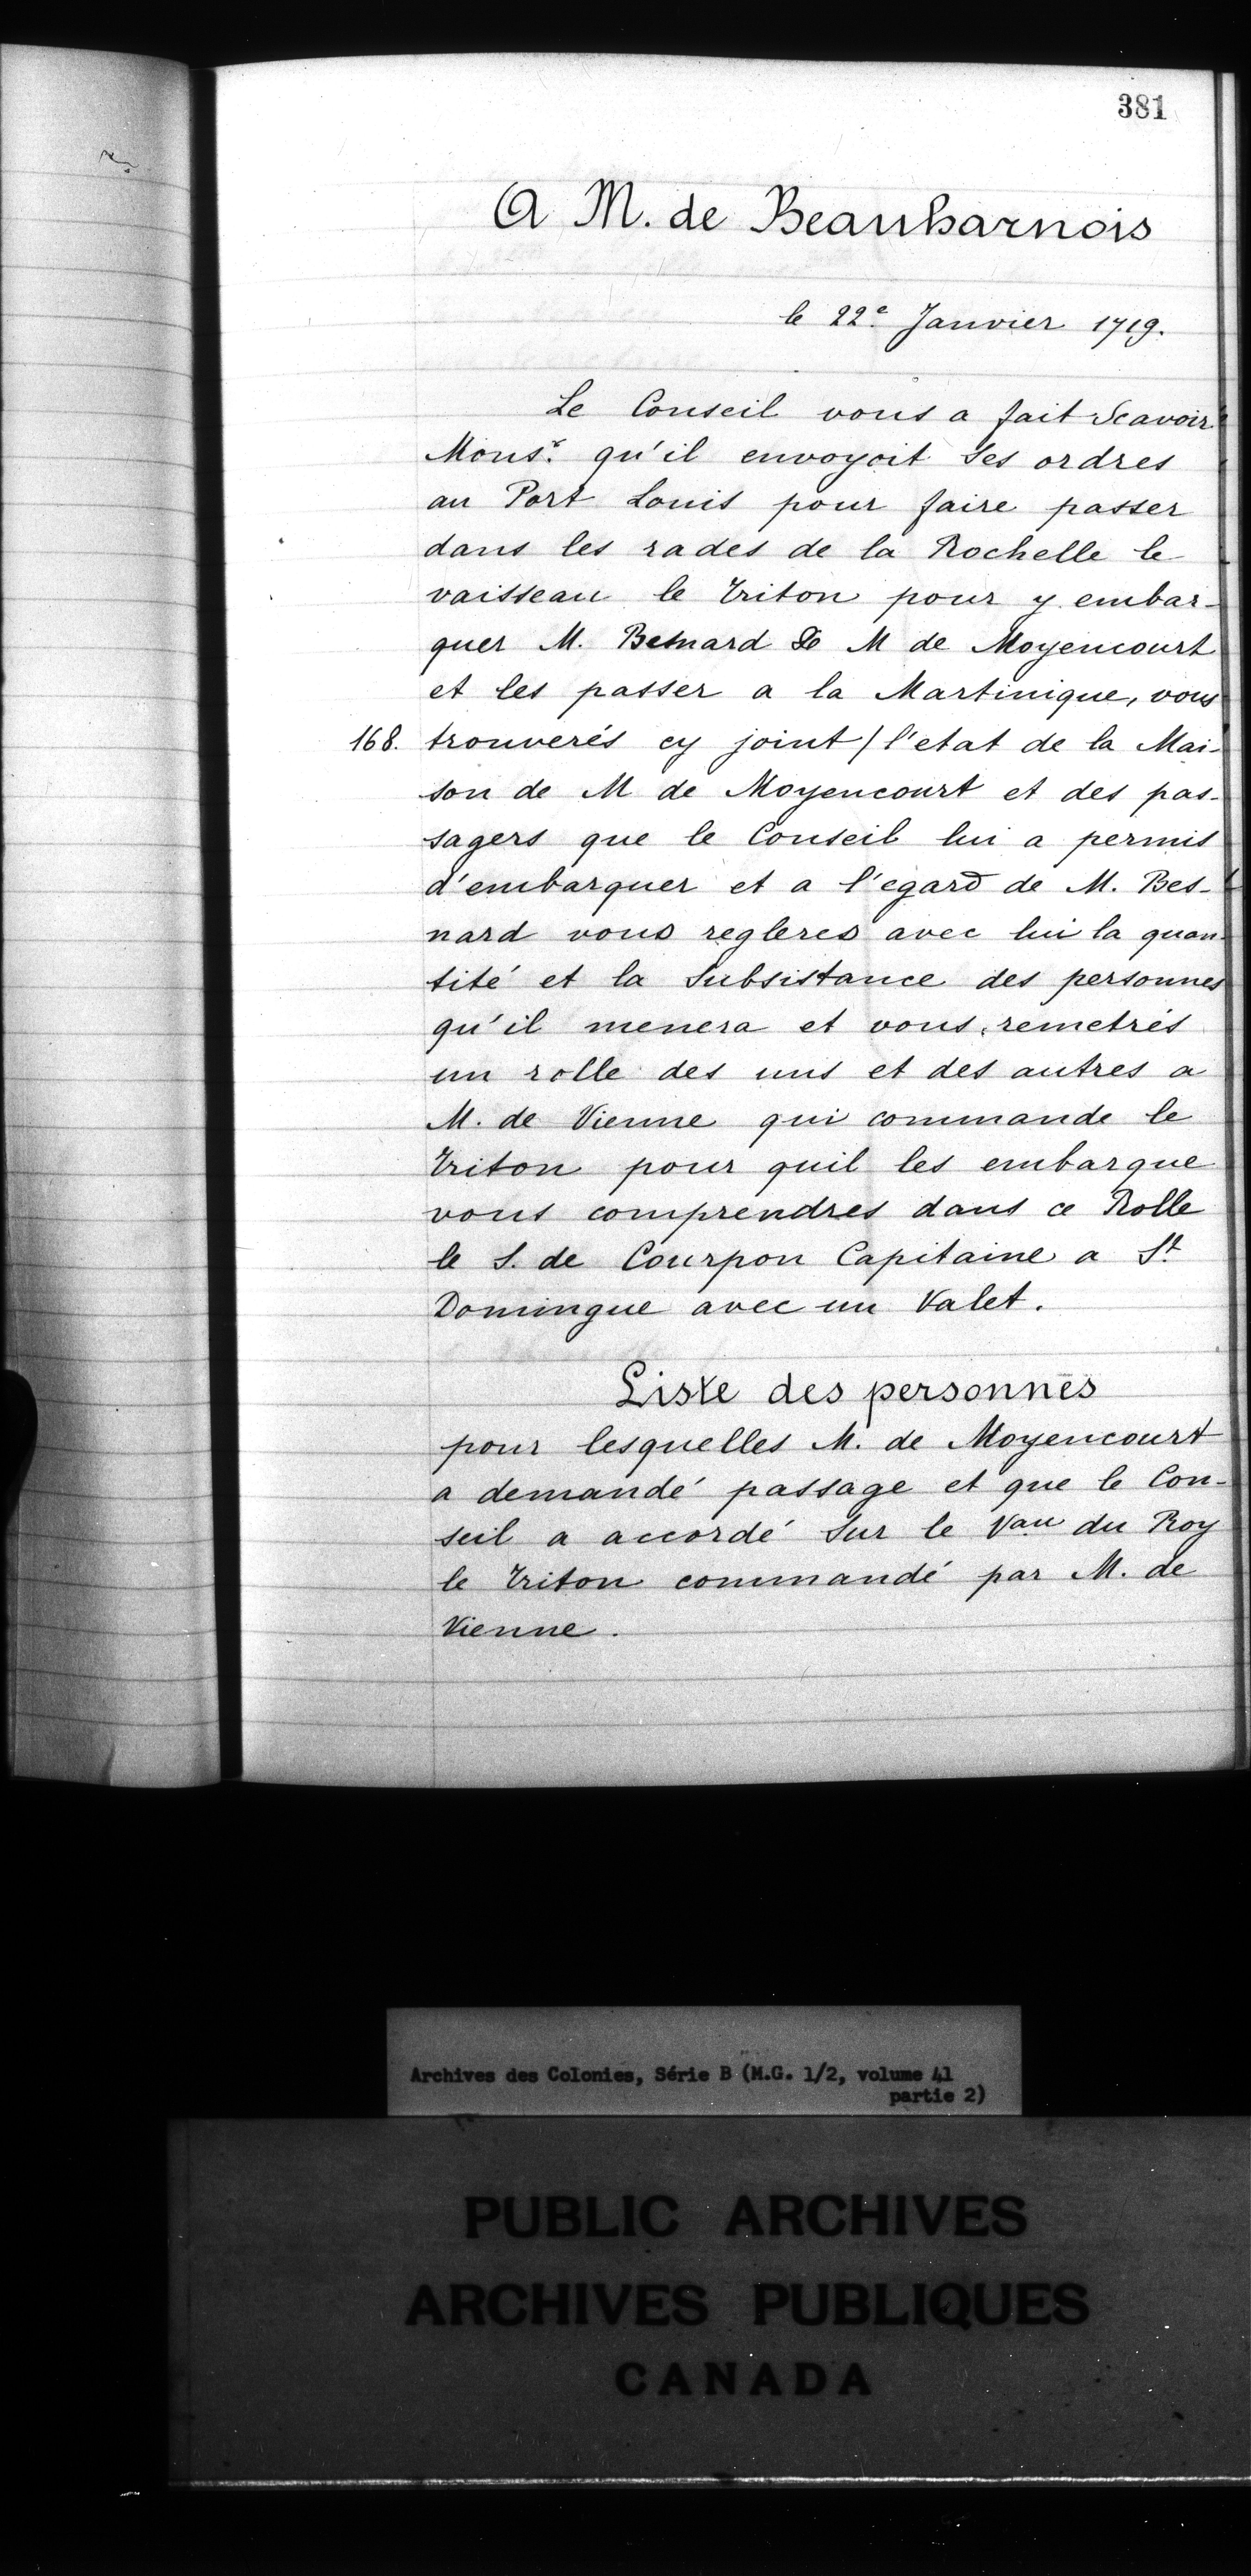 381
A M. de Beauharnois
le 22e Janvier 1719.
Le Conseil vous a fait Scavoir
Monsr. qu'il envoyoit Ses ordres
au Port Louis pour faire passer
dans les rades de la Rochelle le
vaisseau le Triton pour y embar-
quer M. Besnard & M de Moyencourt
et les passer a la Martinique, vous
168. trouverés cy joint / l'etat de la Mai-
son de M de Moyencourt et des pas-
sagers que le Conseil lui a permis
d'embarquer et a l'egard de M. Bes-
nard vous regleres avec lui la quan-
tité et la Subsistance des personnes
qu'il menera et vous remetrés
un rolle des uns et des autres a
M. de Vienne qui commande le
Triton pour quil les embarque
vous comprendres dans ce Rolle
le S. de Courpon Capitaine a St.
Domingue avec un Valet.
Liste des personnes
pour lesquelles M. de Moyencourt
a demandé passage et que le Con-
seil a accordé Sur le Vau du Roy
le Triton commandé par M. de
Vienne.
Archives des Colonies, Série B (M.G. 1/2, volume 41
partie 2)
PUBLIC ARCHIVES
ARCHIVES PUBLIQUES
CANADA